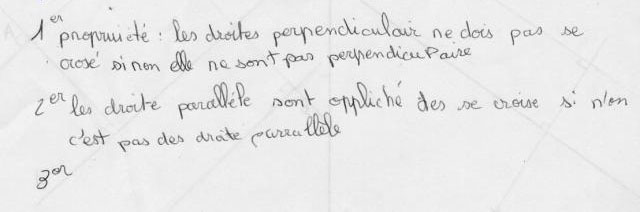 1er propruieté : les droites perpendiculair ne dois pas se
crosé sinon elle ne sont pas perpendiculaire
2er les droite parallèle sont oppliché des se croise si n'on
c'est pas des draite parrallèle
3er